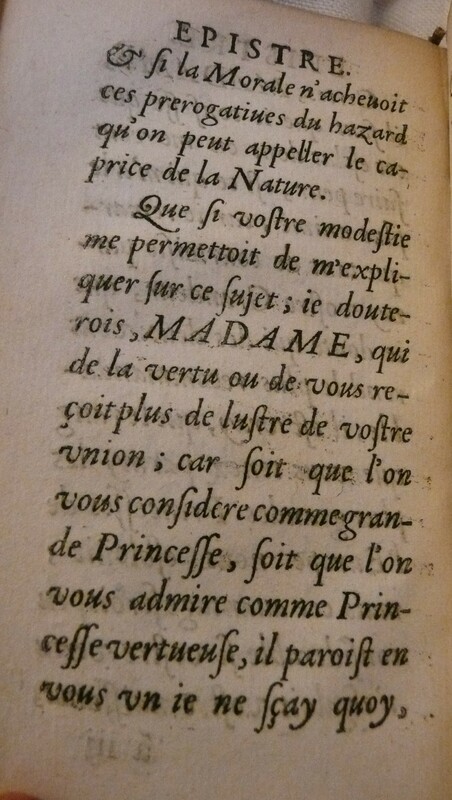 EPISTRE.
& ſi la Morale n'acheuoit
ces prerogatiues du hazard
qu'on peut appeller le ca-
price de la Nature.
Que ſi voſtre modeſtie
me permettoit de m'expli-
quer ſur ce ſujet ; ie doute-
rois, MADAME, qui
de la vertu ou de vous re-
çoit plus de luſtre de voſtre
vnion ; car ſoit que l'on
vous conſidere comme gran-
de Princeſſe, ſoit que l'on
vous admire comme Prin-
ceſſe vertueuſe, il paroiſt en
vous vn ie ne ſçay quoy,